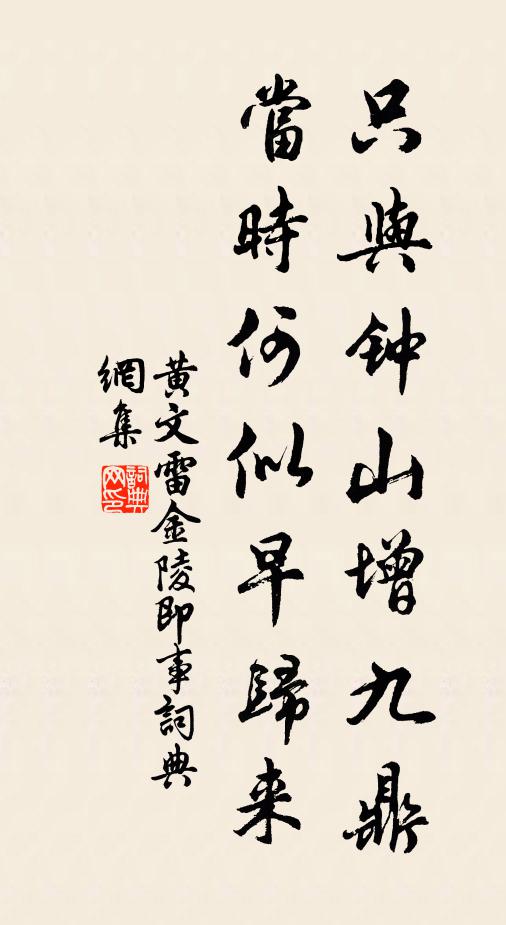 只與钟山增九鼎
當時何似早歸来
黄文雷金陵即事詞典
網集
詞典網印